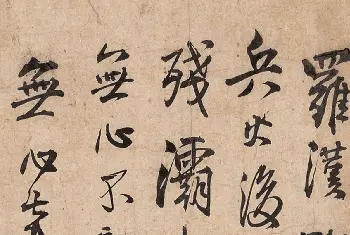 羅漢
兵火後
殘灞
無心不
無心